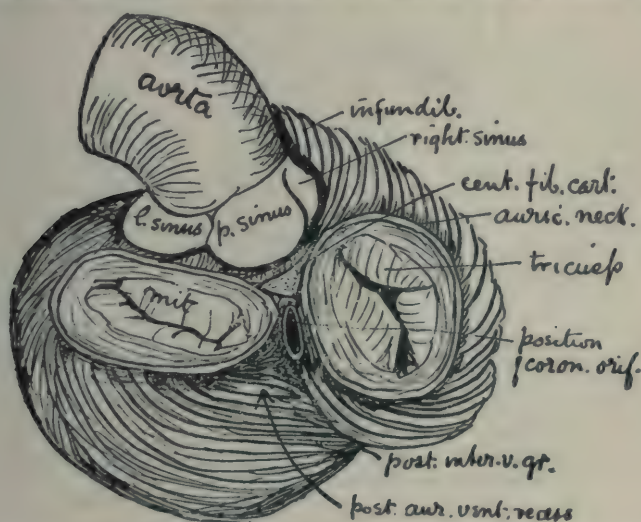 aorta
infundib.
right. sinus
cent. fib. cart.
auric. neck.
l. sinus
p. sinus
tricusp
mit
position
coron. orif.
post. inter. v. gr.
post. aur. vent. recess